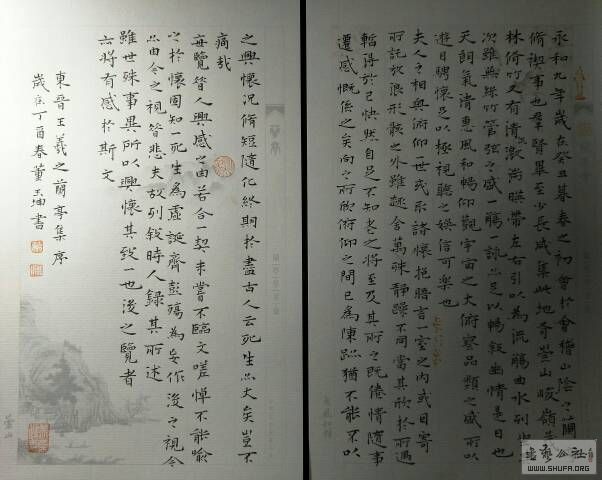 永和九年歲在癸丑暮春之初會於會稽山陰之蘭
脩禊事也群賢畢至少長咸集此地有崇山峻嶺茂
林脩竹又有清流激湍暎帶左右引以為流觴曲水列坐
次雖無絲竹管弦之盛一觴一詠亦足以暢敘幽情是日也
天朗氣清惠風和暢仰觀宇宙之大俯察品類之盛所以
遊目騁懷足以極視聽之娛信可樂也
夫人之相與俯仰一世或取諸懷抱晤言一室之內或因寄
所託放浪形骸之外雖趣舍萬殊靜躁不同當其欣於所遇
暫得於己快然自足不知老之將至及其所之既倦情隨事
遷感慨係之矣向之所欣俯仰之間已為陳迹猶不能不以
之興懷況脩短隨化終期於盡古人云死生亦大矣豈不
痛哉
每覽昔人興感之由若合一契未嘗不臨文嗟悼不能喻
之於懷固知一死生為虛誕齊彭殤為妄作後之視今
亦由今之視昔悲夫故列敘時人錄其所述
雖世殊事異所以興懷其致一也後之覽者
亦將有感於斯文
東晉王羲之蘭亭集序
歲在丁酉春董玉坤書
WWW.SHUFA.ORG